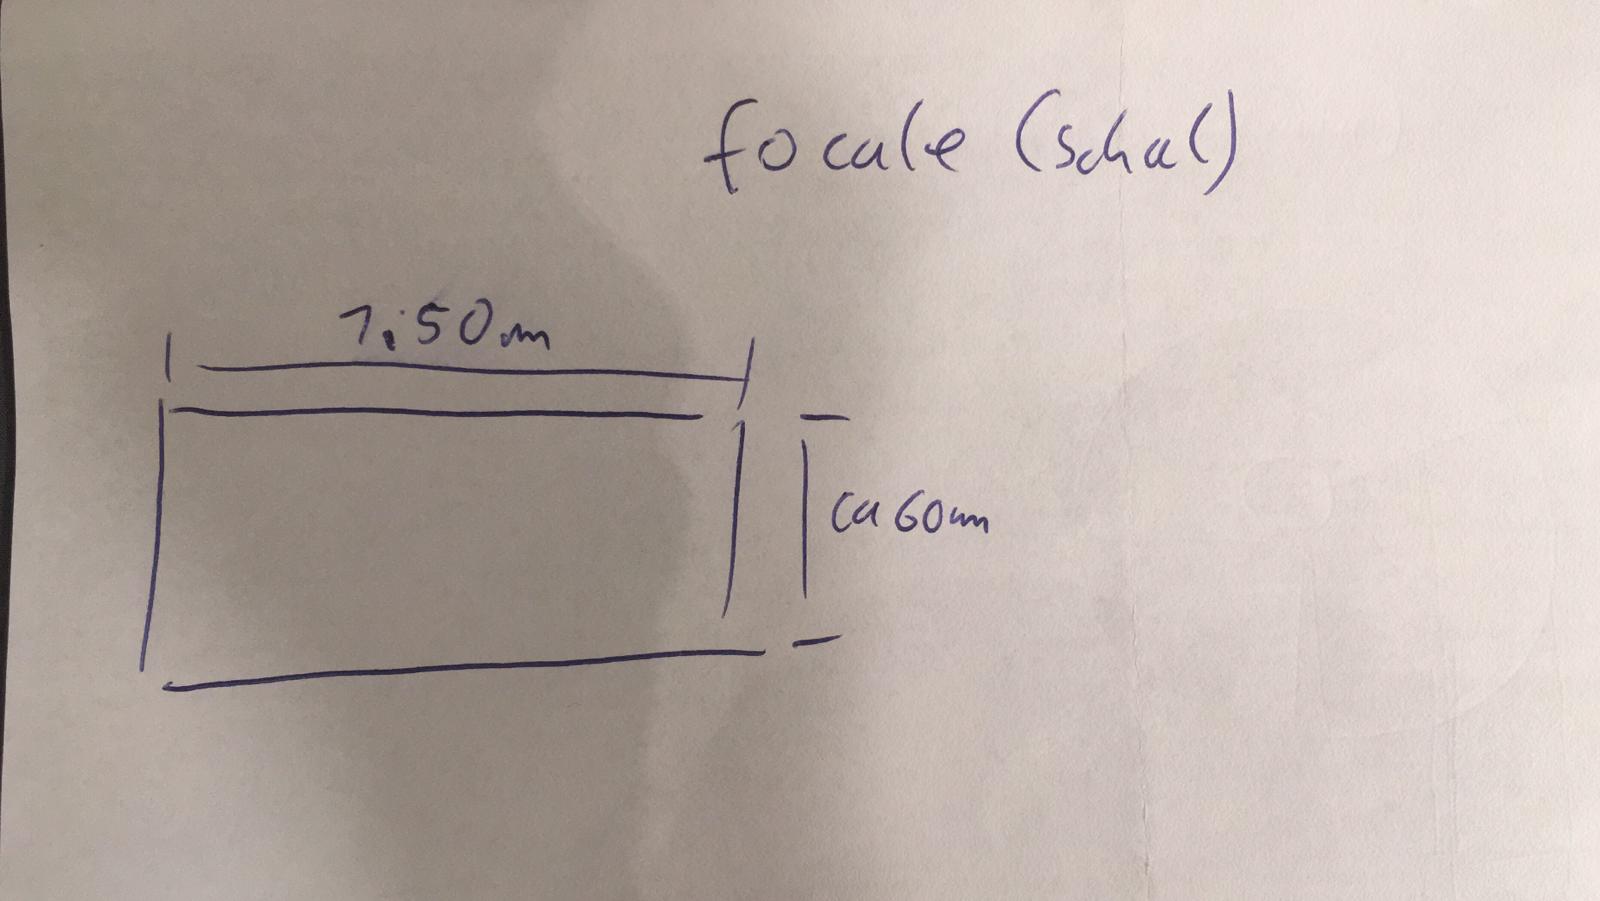 focale (Schal)
1,50m
ca 60cm